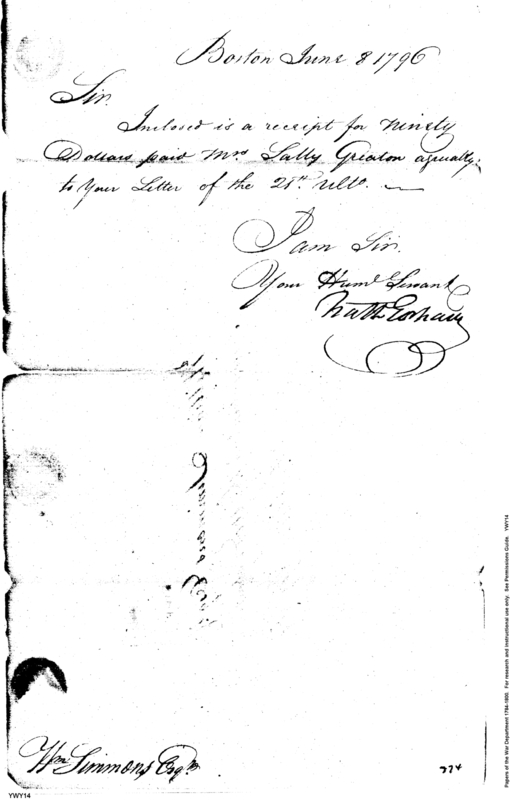 Boston June 8 1796
Sir.
Inclosed is a receipt for Ninety
Dollars paid Mrs Sally Greaton agreeably
to Your Letter of the 28th. ulto.
I am Sir.
Your Humd Servant
Wm Simmons Esqr
774
YWY14
Papers of the War Department 1784-1800. For research and instructional use only. See Permissions Guide. YWY14